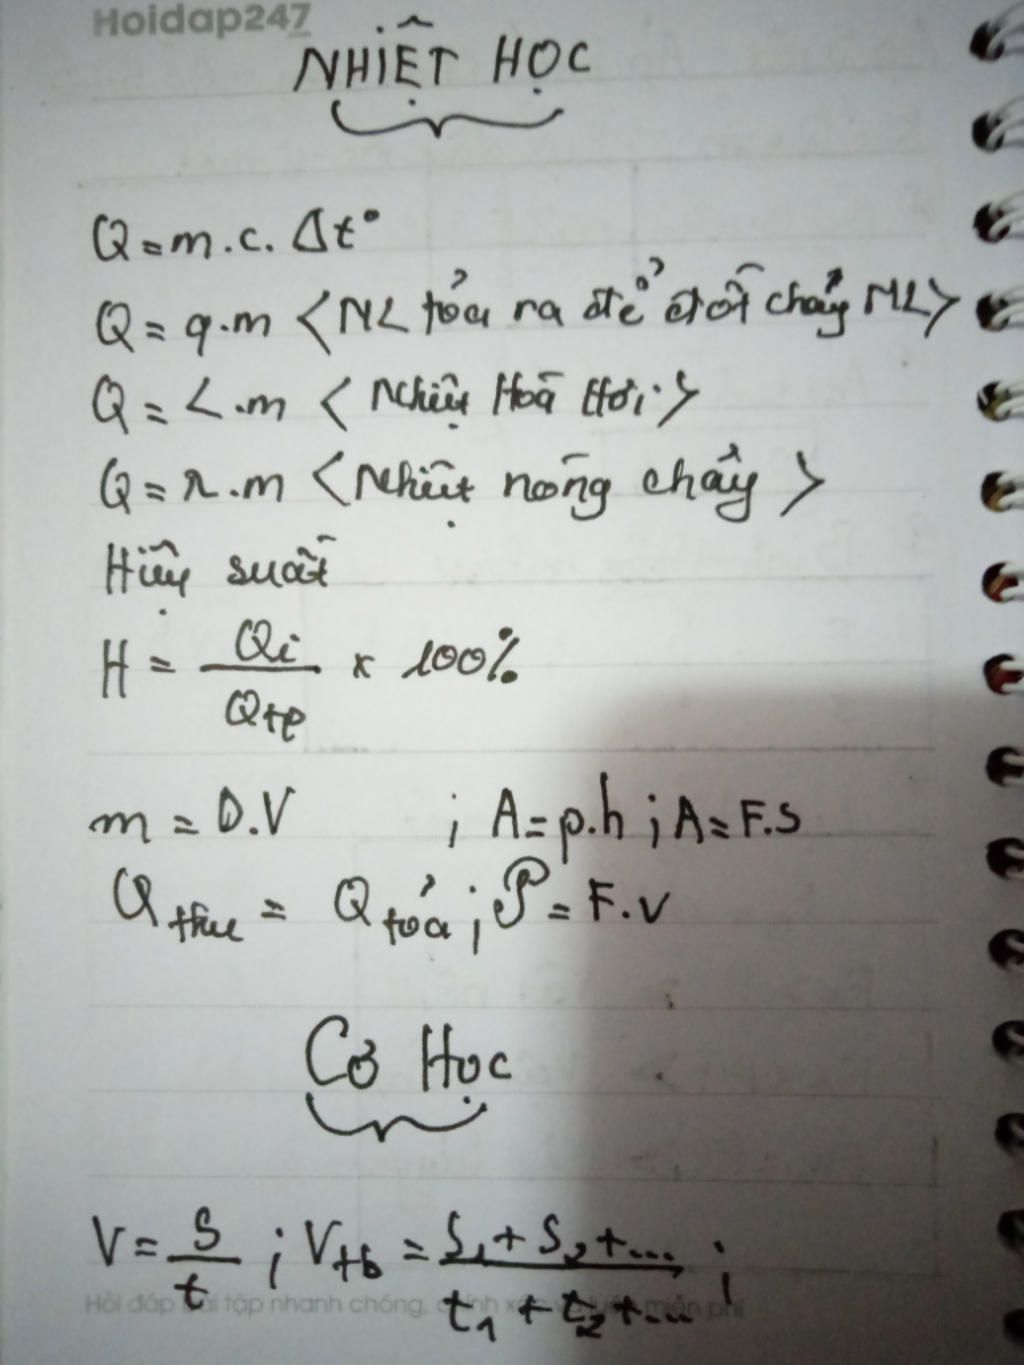 Hoidap247
NHIỆT HỌC
Q = m.c. Δt°
Q = q.m <NL tỏa ra để đốt cháy NL>
Q = L.m < Nhiệt Hoá Hơi >
Q = λ.m <Nhiệt nóng chảy >
Hiệu suất
H = Qi / Qtp × 100%
m = D.V ; A = p.h ; A = F.S
Q thu = Q tỏa ; P = F.V
Cơ Học
V = S / t ; Vtb = S1 + S2 + ... / t1 + t2 + ... ;
Hỏi đáp bài tập nhanh chóng, chính xác và luôn miễn phí